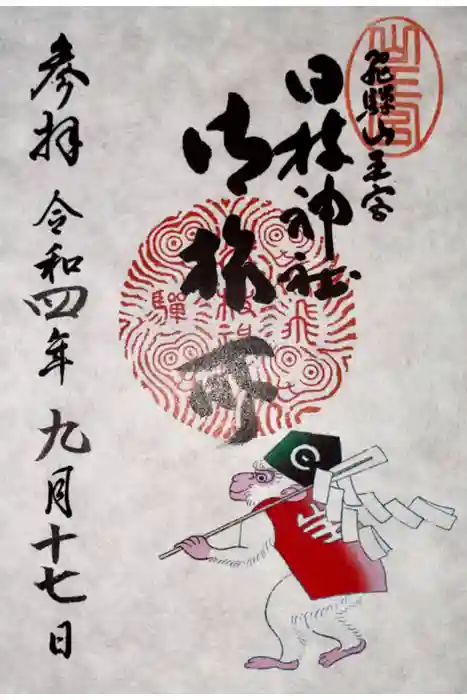 飛騨山王宮
日枝神社
御旅所
参拝 令和四年 九月十七日
飛
騨
山